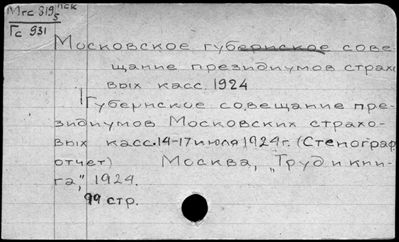 Мгс 819₅ пск
Гс 931
Московское губернское сове-
щание президиумов страхо
вых касс. 1924
Губернское совещание пре-
зидиумов Московских страхо-
вых касс. 14-17 июля 1924 г. (Стенограф
отчет) Москва, „Труд и кни-
га", 1924.
99 стр.